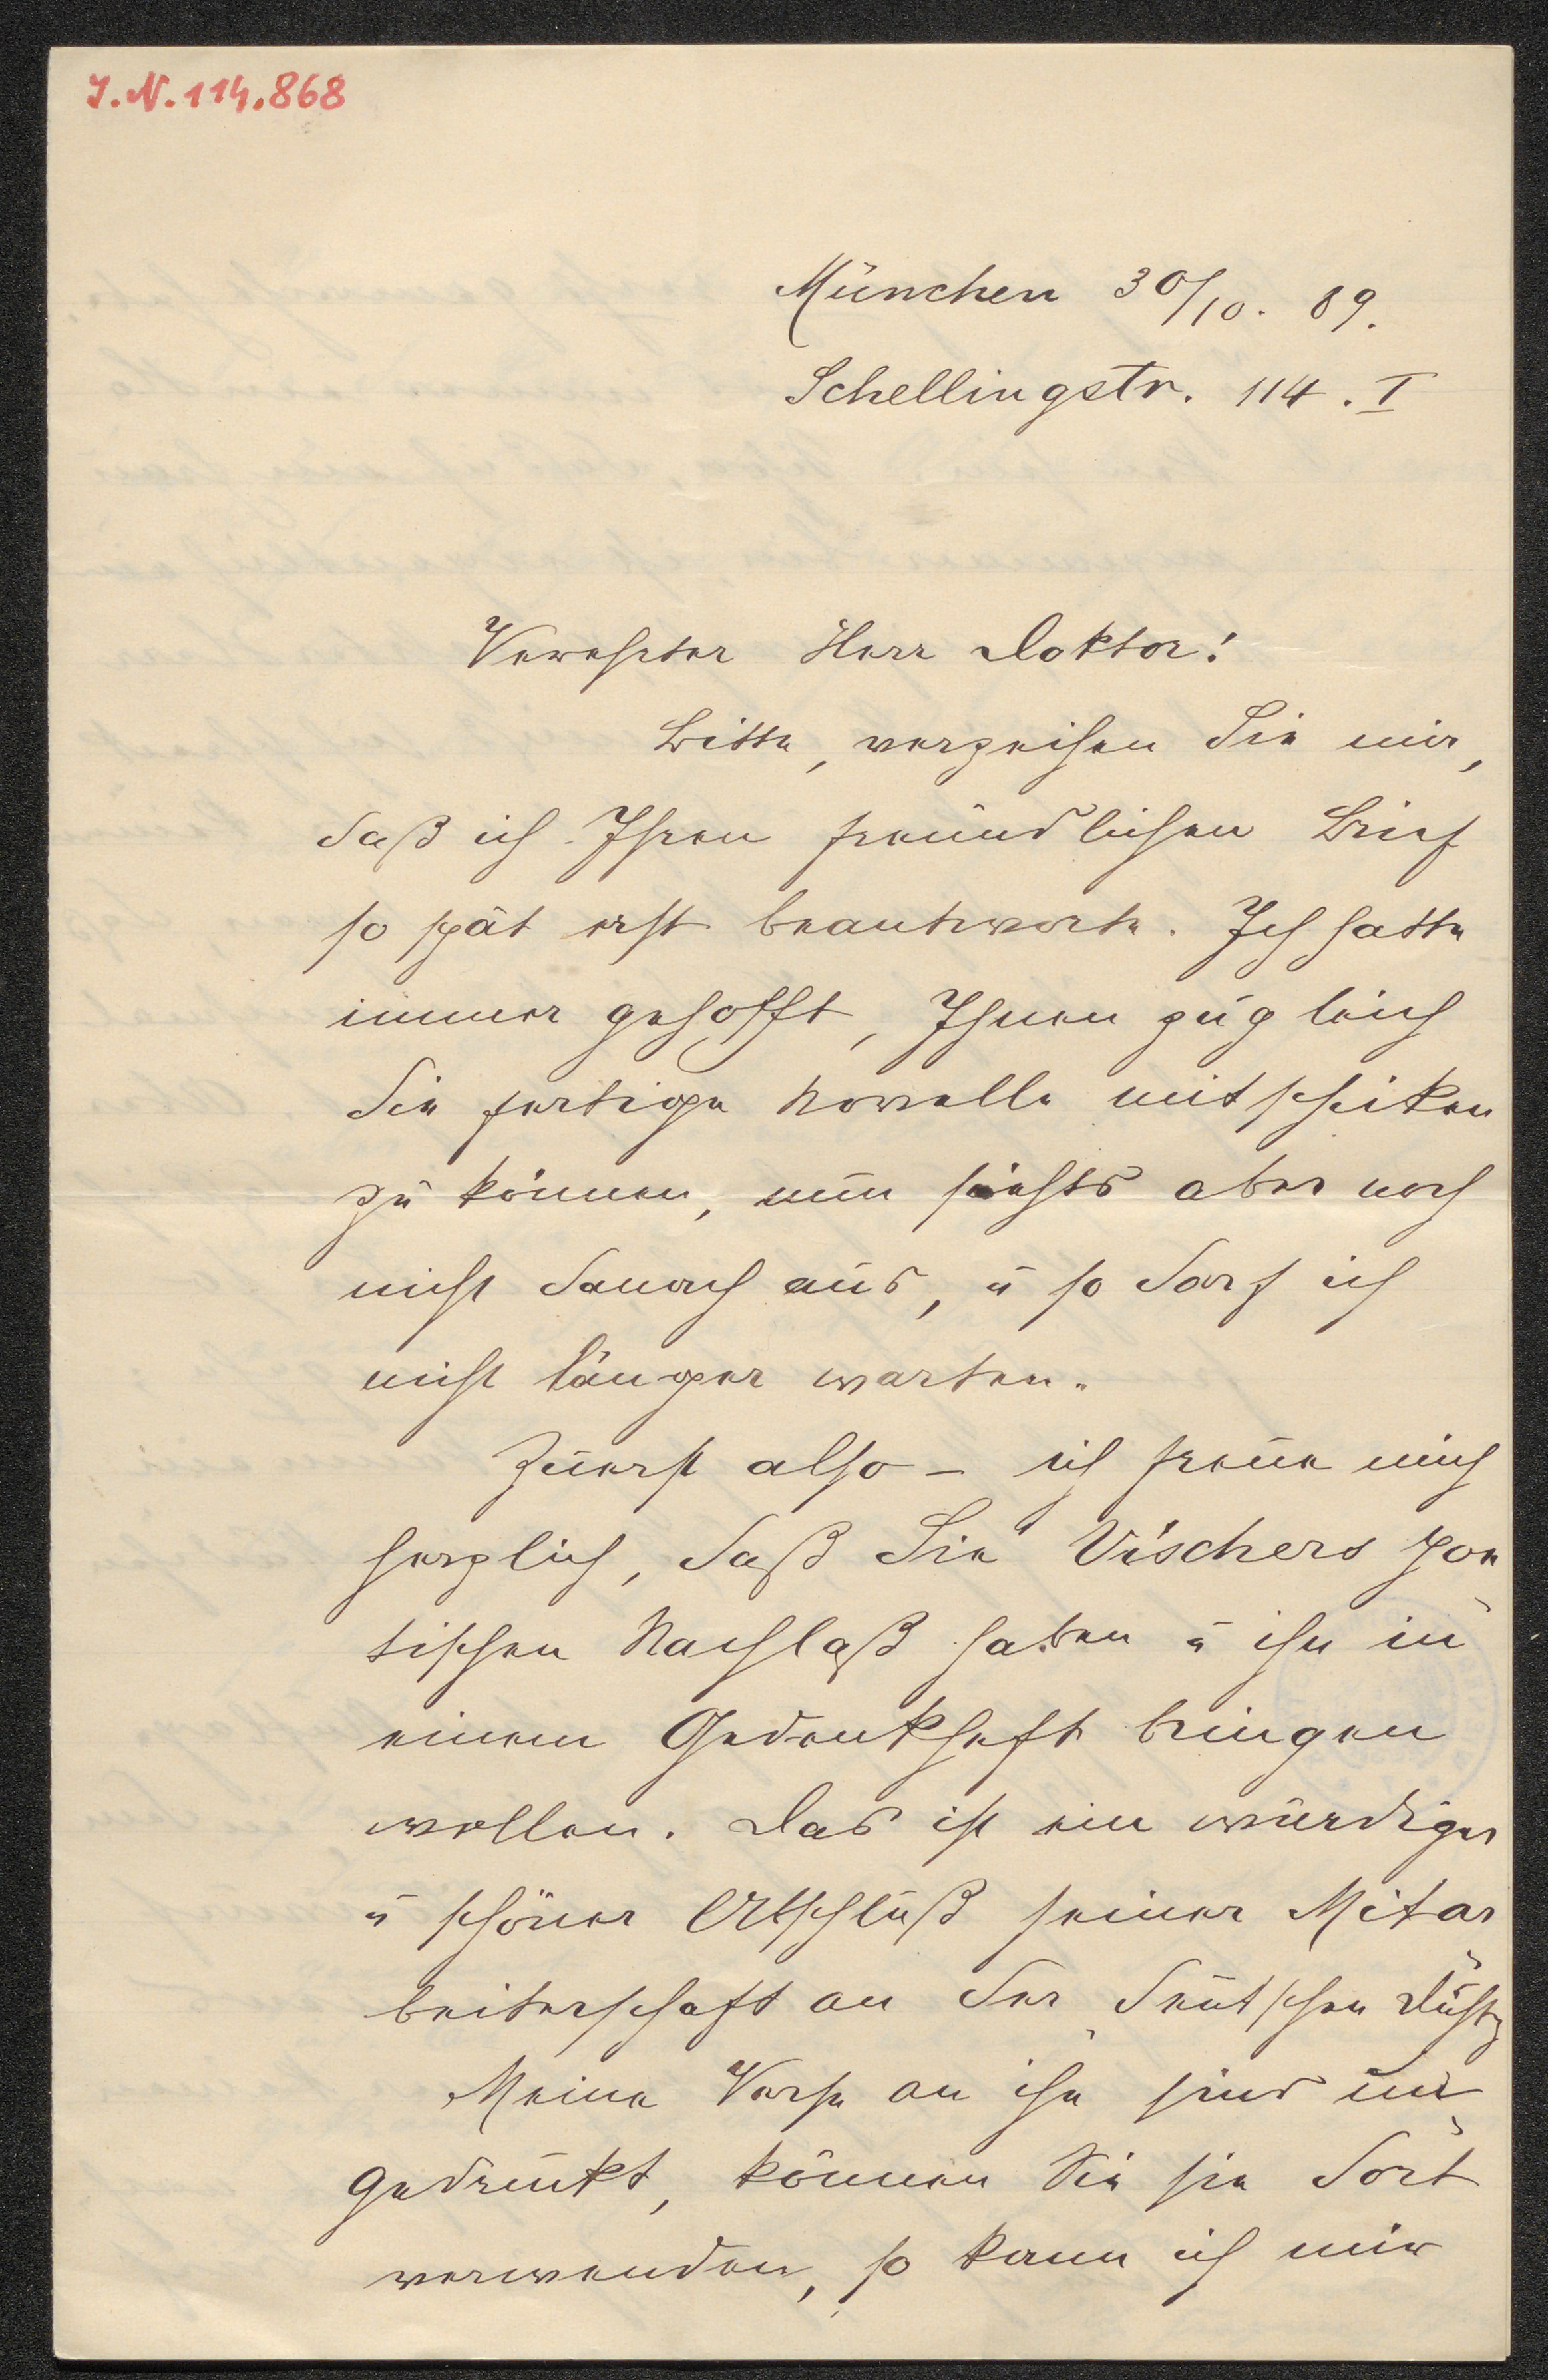 J.N.114.868
München 30/10. 89.
Schellingstr. 114. I
Verehrter Herr Doktor!
Bitte, verzeihen Sie mir,
daß ich Ihren freundlichen Brief
so spät erst beantworte. Ich hatte
immer gehofft, Ihnen zugleich
die fertige Novelle mitschiken
zu können, nun siehts aber noch
nicht danach aus, u so darf ich
nicht länger warten.
Zuerst also – ich freue mich
herzlich, daß Sie Vischers poe
tischen Nachlaß haben u ihn in
einem Gedenkheft bringen
wollen. Das ist ein würdiger
u schöner Abschluß seiner Mitar
beiterschaft an der deutschen Dichtg
Meine Verse an ihn sind un
gedrukt, können Sie sie dort
verwenden, so kann ich mir